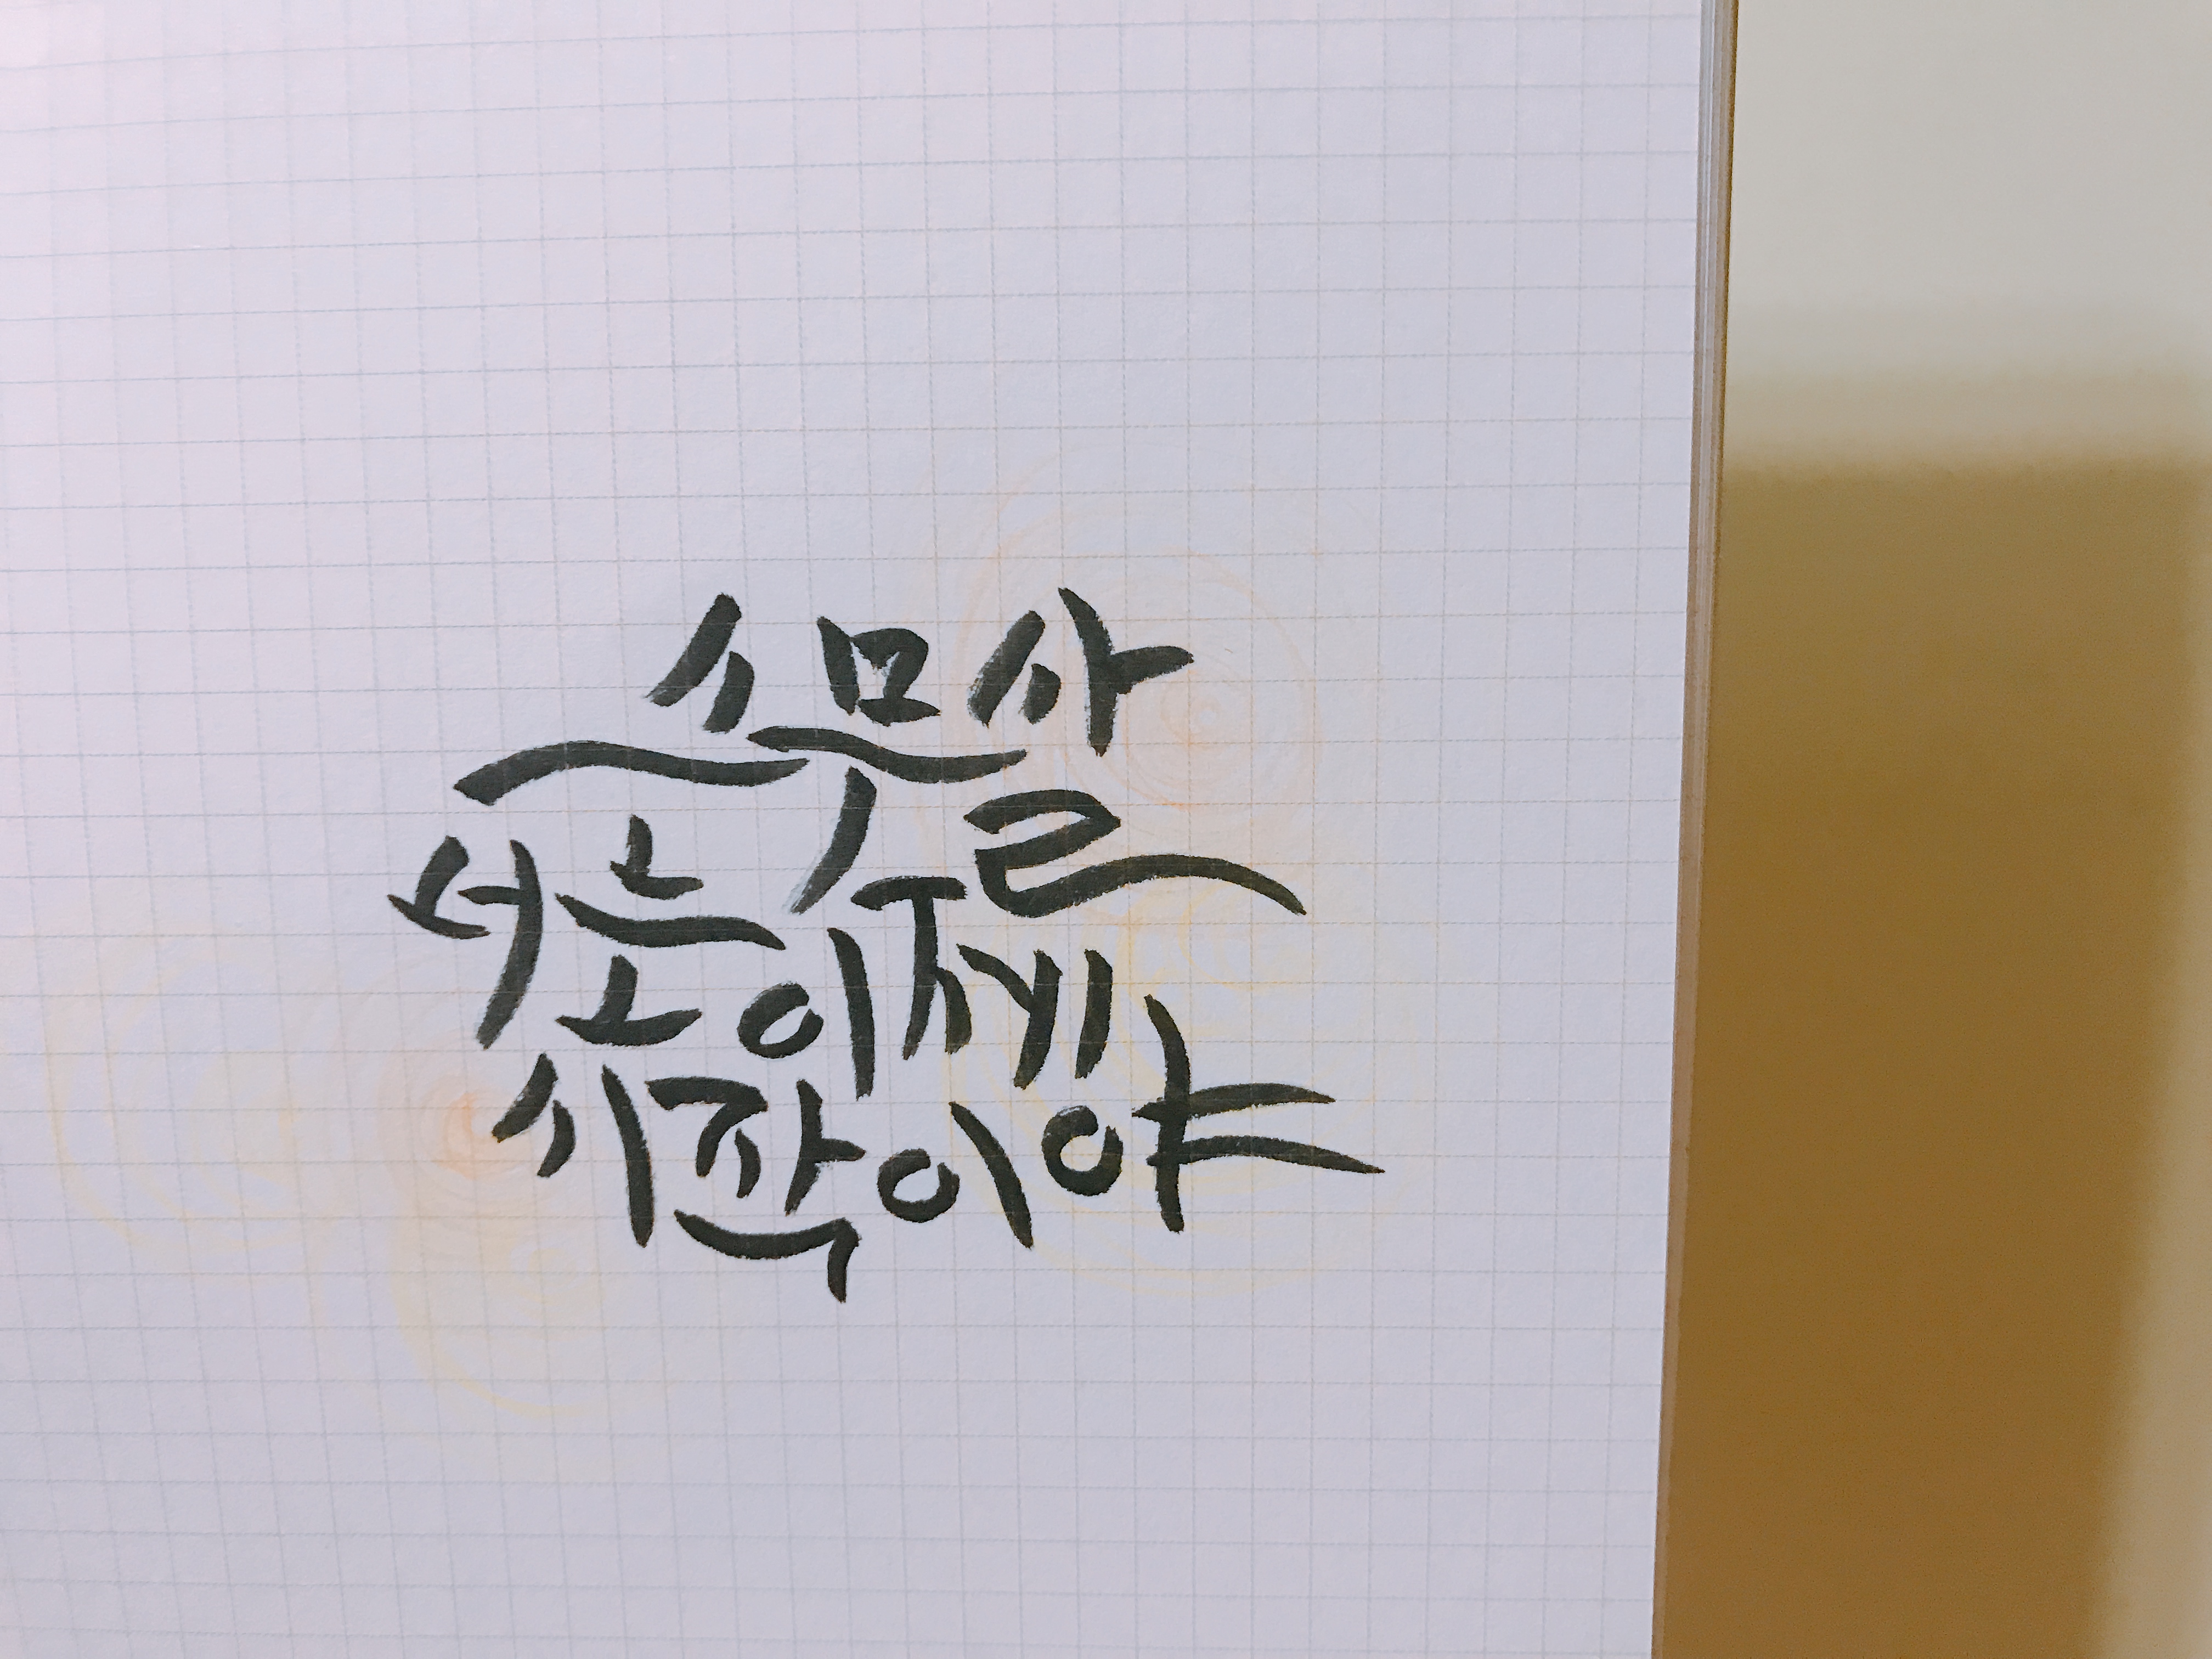 스무살
너는
이제
시작이야